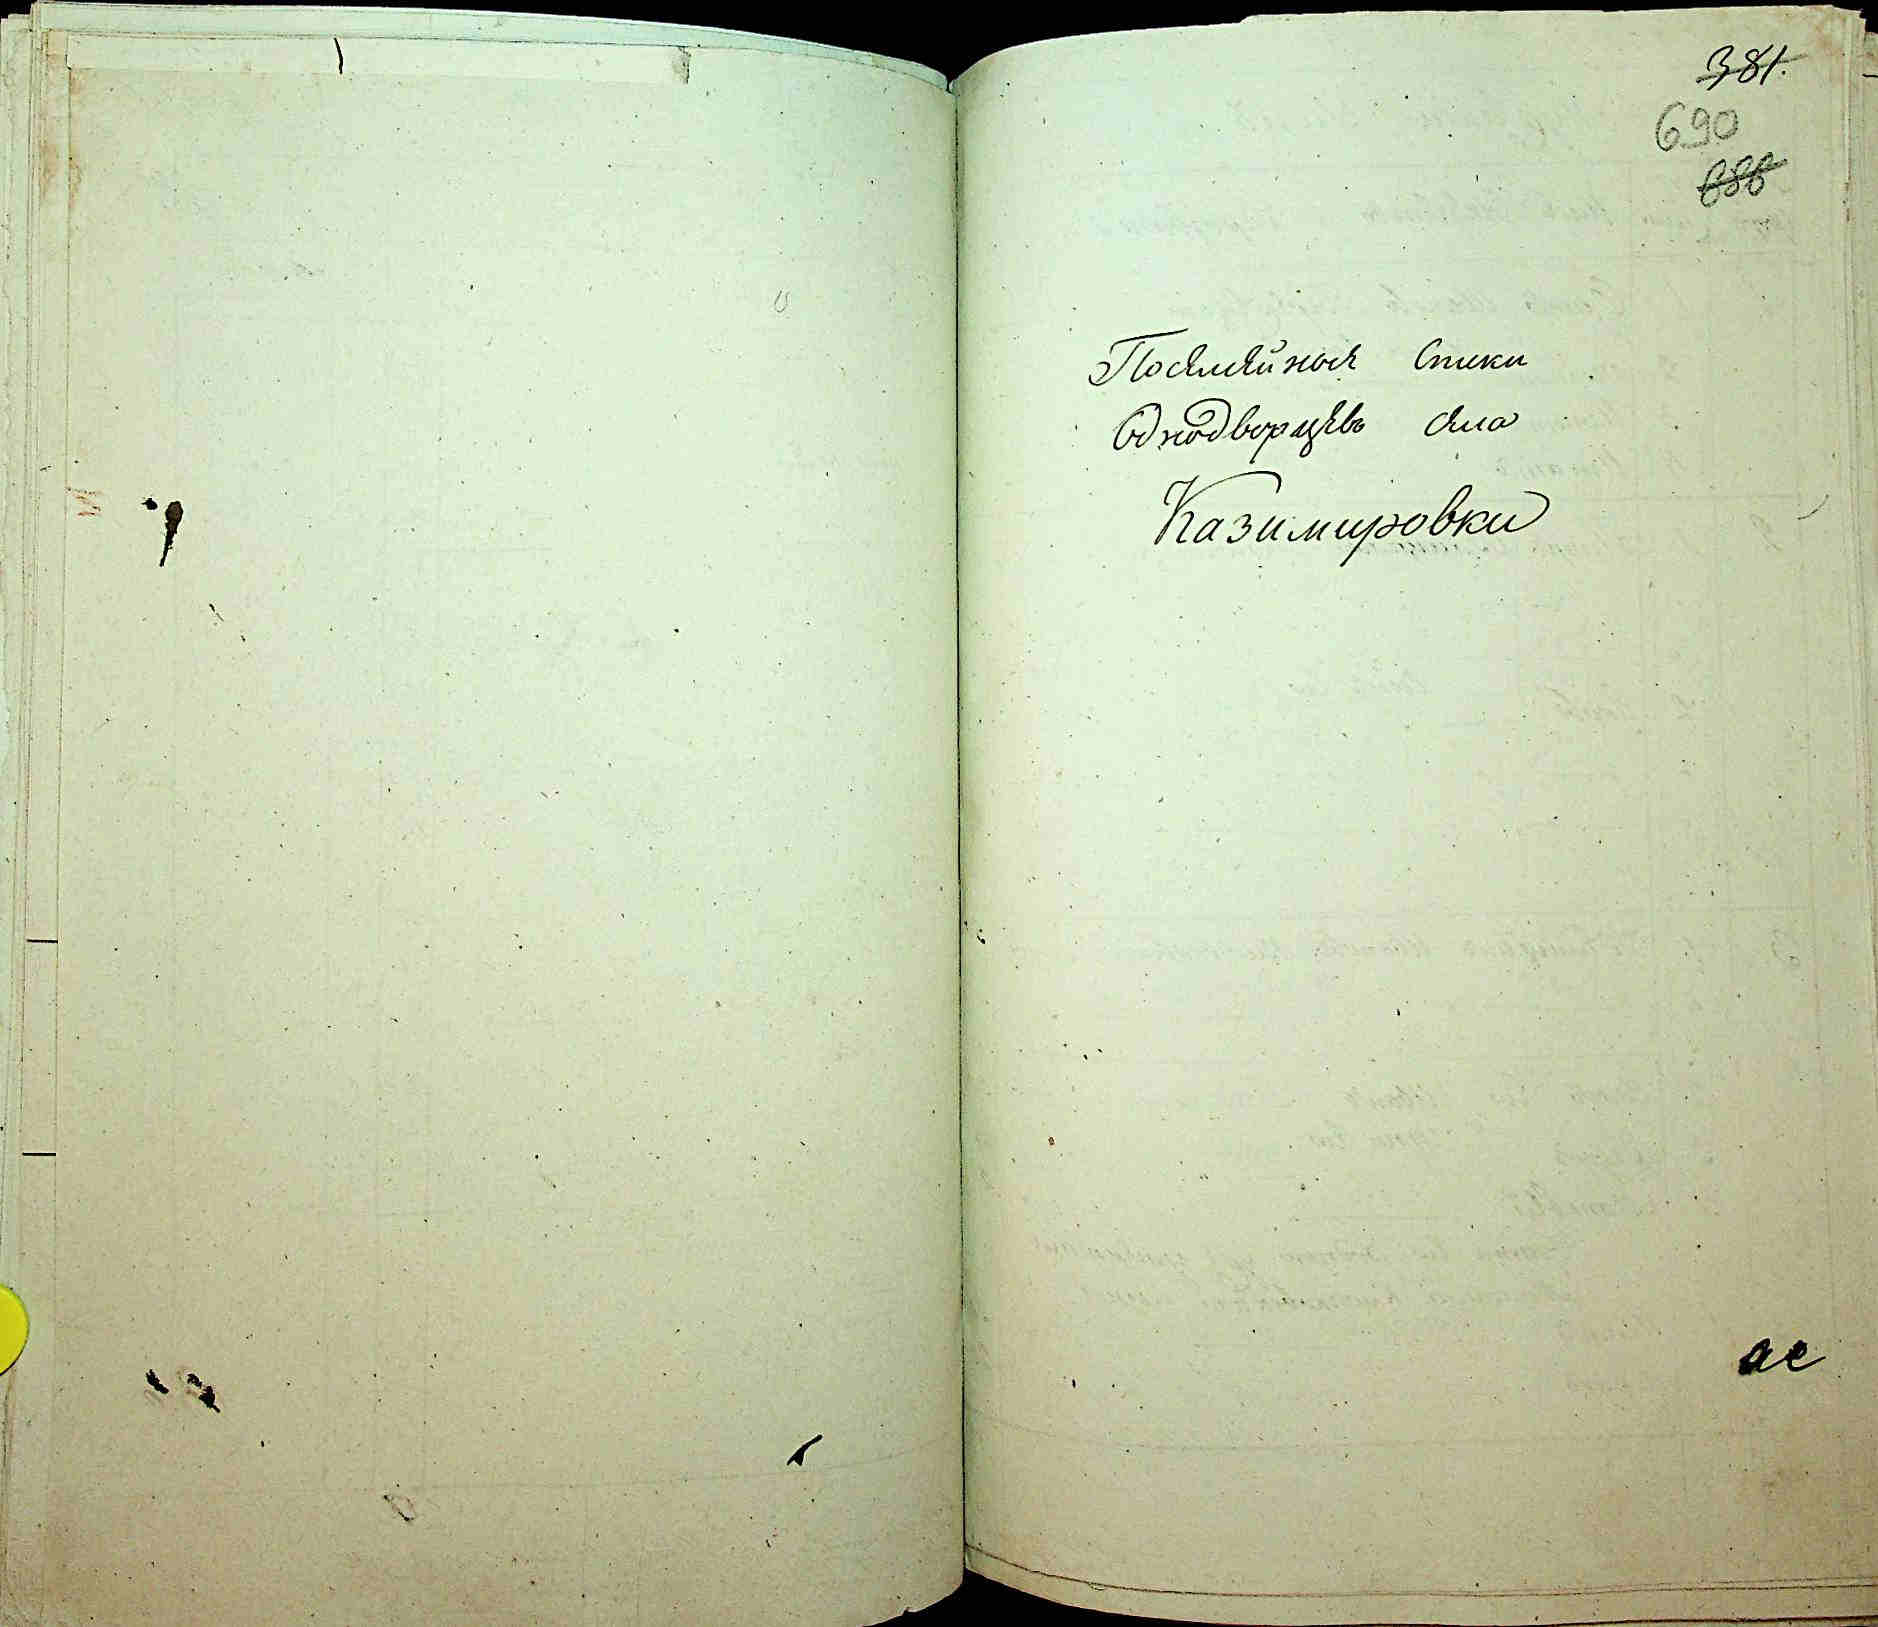 381.
690
688
Посемейныя Списки
Однодворцевъ села
Казимировки